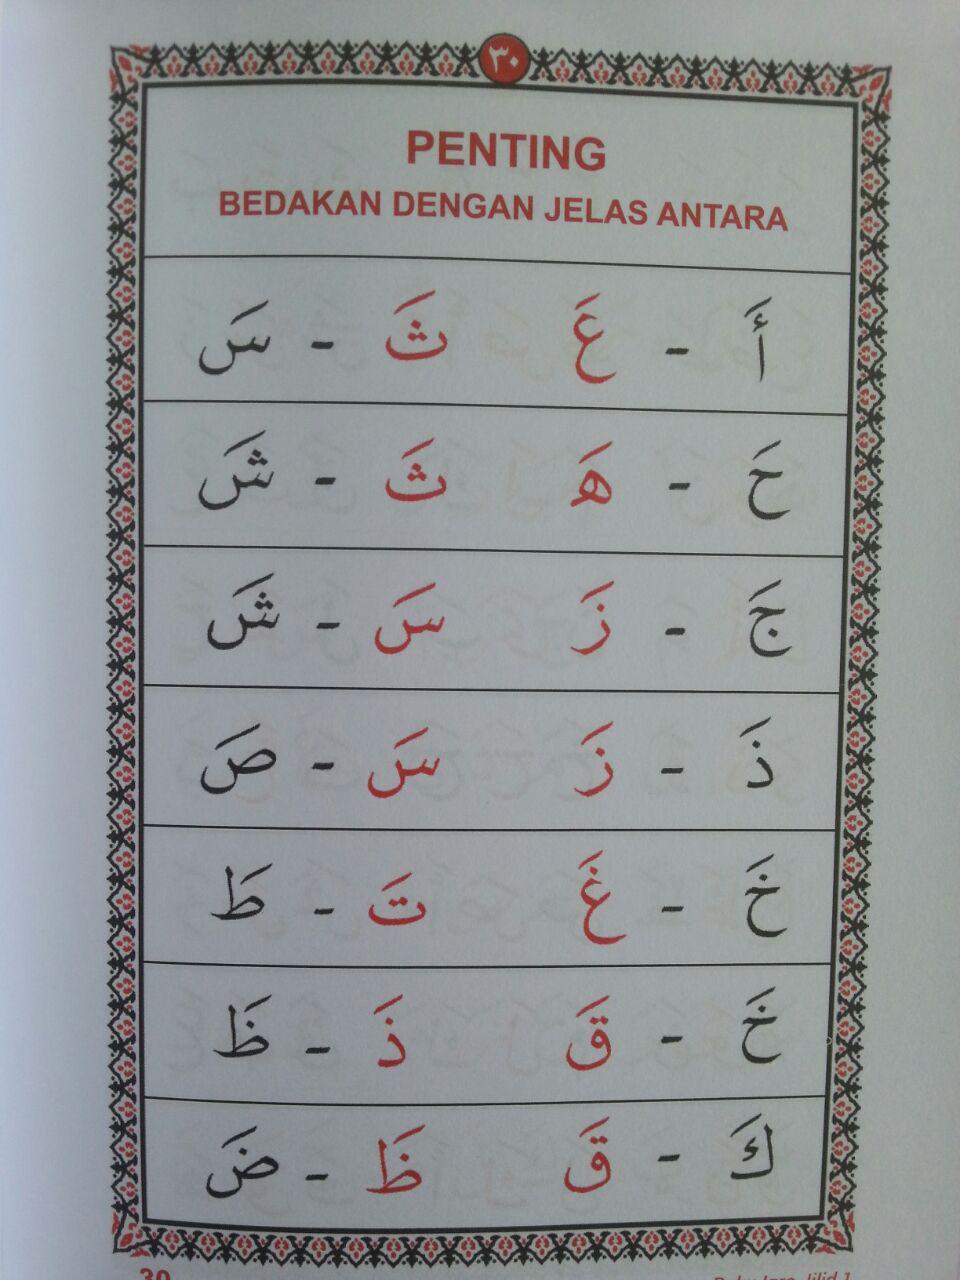 ٣٠
PENTING
BEDAKAN DENGAN JELAS ANTARA
أَ - عَ ثَ - سَ
حَ - هَ ثَ - شَ
جَ - زَ سَ - شَ
ذَ - زَ سَ - صَ
خَ - غَ تَ - طَ
خَ - قَ ذَ - ظَ
كَ - قَ ظَ - ضَ
30 Buku Iqro Jilid 1